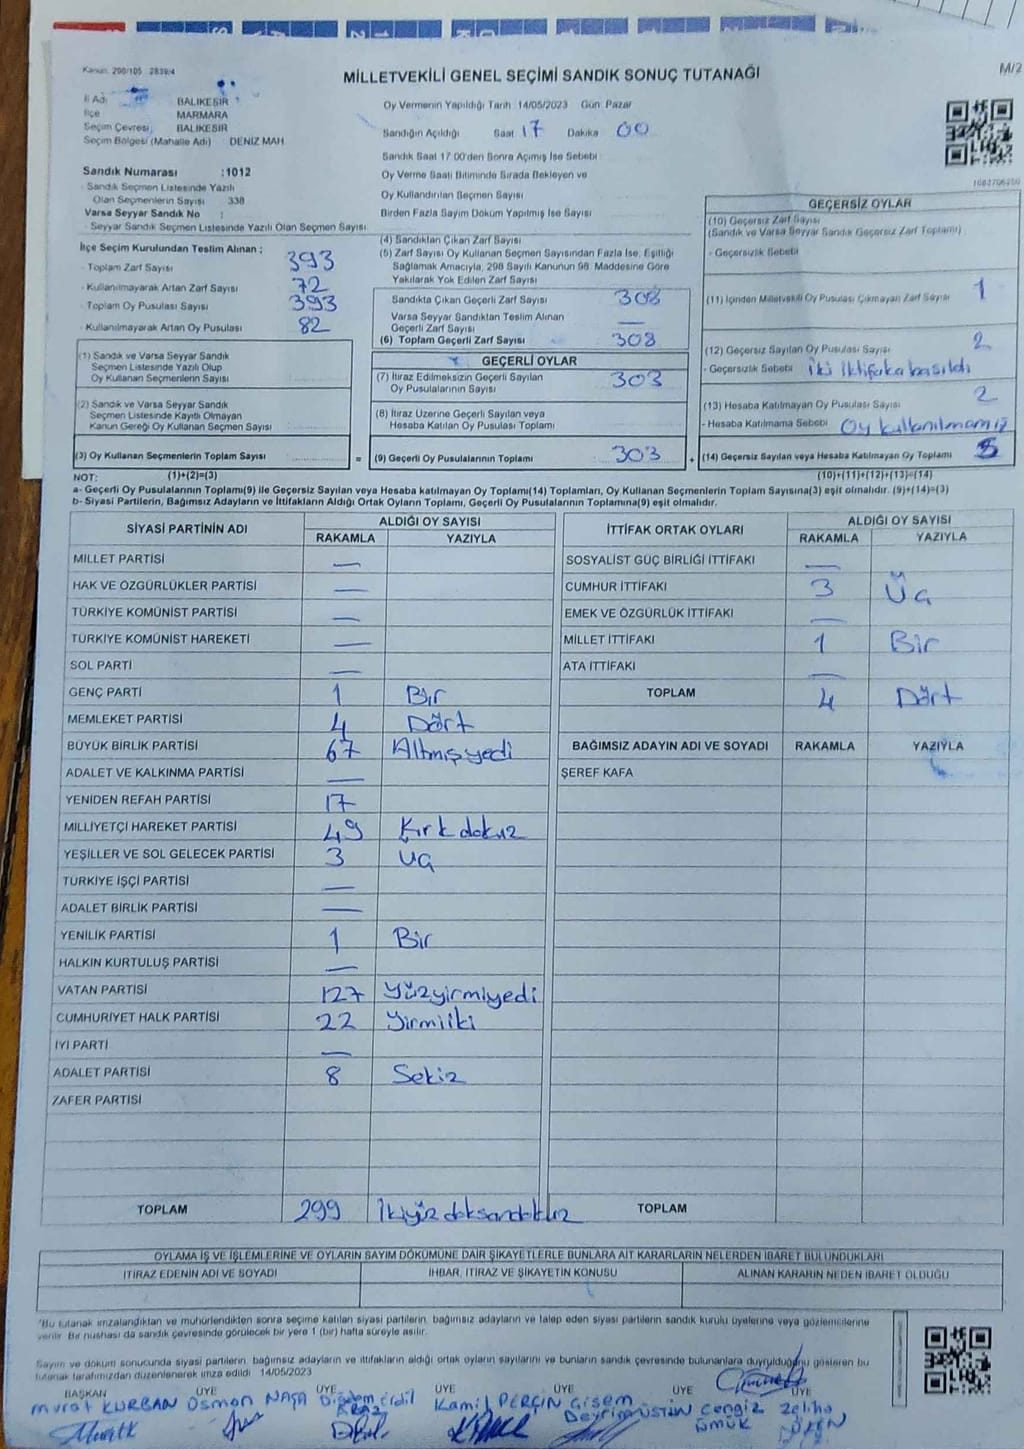 Kanun: 298/105 2839/4
M/2
MİLLETVEKİLİ GENEL SEÇİMİ SANDIK SONUÇ TUTANAĞI
İl Adı BALIKESİR
İlçe MARMARA
Seçim Çevresi BALIKESİR
Seçim Bölgesi (Mahalle Adı) DENİZ MAH
Sandık Numarası :1012
- Sandık Seçmen Listesinde Yazılı
Olan Seçmenlerin Sayısı 338
Varsa Seyyar Sandık No :
- Seyyar Sandık Seçmen Listesinde Yazılı Olan Seçmen Sayısı
İlçe Seçim Kurulundan Teslim Alınan ;
- Toplam Zarf Sayısı 393
- Kullanılmayarak Artan Zarf Sayısı 72
- Toplam Oy Pusulası Sayısı 393
- Kullanılmayarak Artan Oy Pusulası 82
(1) Sandık ve Varsa Seyyar Sandık
Seçmen Listesinde Yazılı Olup
Oy Kullanan Seçmenlerin Sayısı
(2) Sandık ve Varsa Seyyar Sandık
Seçmen Listesinde Kayıtlı Olmayan
Kanun Gereği Oy Kullanan Seçmen Sayısı
(3) Oy Kullanan Seçmenlerin Toplam Sayısı =
Oy Vermenin Yapıldığı Tarih 14/05/2023 Gün Pazar
Sandığın Açıldığı Saat 17 Dakika 00
Sandık Saat 17:00'den Sonra Açılmış İse Sebebi
Oy Verme Saati Bitiminde Sırada Bekleyen ve
Oy Kullandırılan Seçmen Sayısı
Birden Fazla Sayım Döküm Yapılmış İse Sayısı
(4) Sandıktan Çıkan Zarf Sayısı
(5) Zarf Sayısı Oy Kullanan Seçmen Sayısından Fazla İse, Eşitliği
Sağlamak Amacıyla, 298 Sayılı Kanunun 98. Maddesine Göre
Yakılarak Yok Edilen Zarf Sayısı
Sandıkta Çıkan Geçerli Zarf Sayısı 308
Varsa Seyyar Sandıktan Teslim Alınan
Geçerli Zarf Sayısı —
(6) Toplam Geçerli Zarf Sayısı 308
GEÇERLİ OYLAR
(7) İtiraz Edilmeksizin Geçerli Sayılan
Oy Pusulalarının Sayısı 303
(8) İtiraz Üzerine Geçerli Sayılan veya
Hesaba Katılan Oy Pusulası Toplamı
(9) Geçerli Oy Pusulalarının Toplamı 303 +
GEÇERSİZ OYLAR
(10) Geçersiz Zarf Sayısı
(Sandık ve Varsa Seyyar Sandık Geçersiz Zarf Toplamı)
- Geçersizlik Sebebi
(11) İçinden Milletvekili Oy Pusulası Çıkmayan Zarf Sayısı 1
(12) Geçersiz Sayılan Oy Pusulası Sayısı 2
- Geçersizlik Sebebi İki ittifaka basıldı
(13) Hesaba Katılmayan Oy Pusulası Sayısı 2
- Hesaba Katılmama Sebebi Oy kullanılmamış
(14) Geçersiz Sayılan veya Hesaba Katılmayan Oy Toplamı 5
NOT: (1)+(2)=(3) (10)+(11)+(12)+(13)=(14)
a- Geçerli Oy Pusulalarının Toplamı(9) ile Geçersiz Sayılan veya Hesaba katılmayan Oy Toplamı(14) Toplamları, Oy Kullanan Seçmenlerin Toplam Sayısına(3) eşit olmalıdır. (9)+(14)=(3)
b- Siyasi Partilerin, Bağımsız Adayların ve İttifakların Aldığı Ortak Oyların Toplamı, Geçerli Oy Pusulalarının Toplamına(9) eşit olmalıdır.
SİYASİ PARTİNİN ADI ALDIĞI OY SAYISI
RAKAMLA YAZIYLA
MİLLET PARTİSİ —
HAK VE ÖZGÜRLÜKLER PARTİSİ —
TÜRKİYE KOMÜNİST PARTİSİ —
TÜRKİYE KOMÜNİST HAREKETİ —
SOL PARTİ —
GENÇ PARTİ 1 Bir
MEMLEKET PARTİSİ 4 Dört
BÜYÜK BİRLİK PARTİSİ 67 Altmışyedi
ADALET VE KALKINMA PARTİSİ —
YENİDEN REFAH PARTİSİ 17
MİLLİYETÇİ HAREKET PARTİSİ 49 Kırk dokuz
YEŞİLLER VE SOL GELECEK PARTİSİ 3 Üç
TÜRKİYE İŞÇİ PARTİSİ —
ADALET BİRLİK PARTİSİ —
YENİLİK PARTİSİ 1 Bir
HALKIN KURTULUŞ PARTİSİ —
VATAN PARTİSİ 127 Yüzyirmiyedi
CUMHURİYET HALK PARTİSİ 22 Yirmiiki
İYİ PARTİ —
ADALET PARTİSİ 8 Sekiz
ZAFER PARTİSİ
TOPLAM 299 İkiyüz doksandokuz
İTTİFAK ORTAK OYLARI ALDIĞI OY SAYISI
RAKAMLA YAZIYLA
SOSYALİST GÜÇ BİRLİĞİ İTTİFAKI —
CUMHUR İTTİFAKI 3 Üç
EMEK VE ÖZGÜRLÜK İTTİFAKI —
MİLLET İTTİFAKI 1 Bir
ATA İTTİFAKI —
TOPLAM 4 Dört
BAĞIMSIZ ADAYIN ADI VE SOYADI RAKAMLA YAZIYLA
ŞEREF KAFA
TOPLAM
OYLAMA İŞ VE İŞLEMLERİNE VE OYLARIN SAYIM DÖKÜMÜNE DAİR ŞİKAYETLERLE BUNLARA AİT KARARLARIN NELERDEN İBARET BULUNDUKLARI
İTİRAZ EDENİN ADI VE SOYADI İHBAR, İTİRAZ VE ŞİKAYETİN KONUSU ALINAN KARARIN NEDEN İBARET OLDUĞU
*Bu tutanak imzalandıktan ve mühürlendikten sonra seçime katılan siyasi partilerin, bağımsız adayların ve talep eden siyasi partilerin sandık kurulu üyelerine veya gözlemcilerine
verilir. Bir nüshası da sandık çevresinde görülecek bir yere 1 (bir) hafta süreyle asılır.
Sayım ve döküm sonucunda siyasi partilerin, bağımsız adayların ve ittifakların aldığı ortak oyların sayılarını ve bunların sandık çevresinde bulunanlara duyrulduğunu gösteren bu
tutanak tarafımızdan düzenlenerek imza edildi 14/05/2023
BAŞKAN ÜYE ÜYE ÜYE ÜYE ÜYE ÜYE
Murat KURBAN Osman NAŞA Didem Erdil Kamil PERÇİN Gizem Cengiz Zeliha
Devrim ÜSTÜN